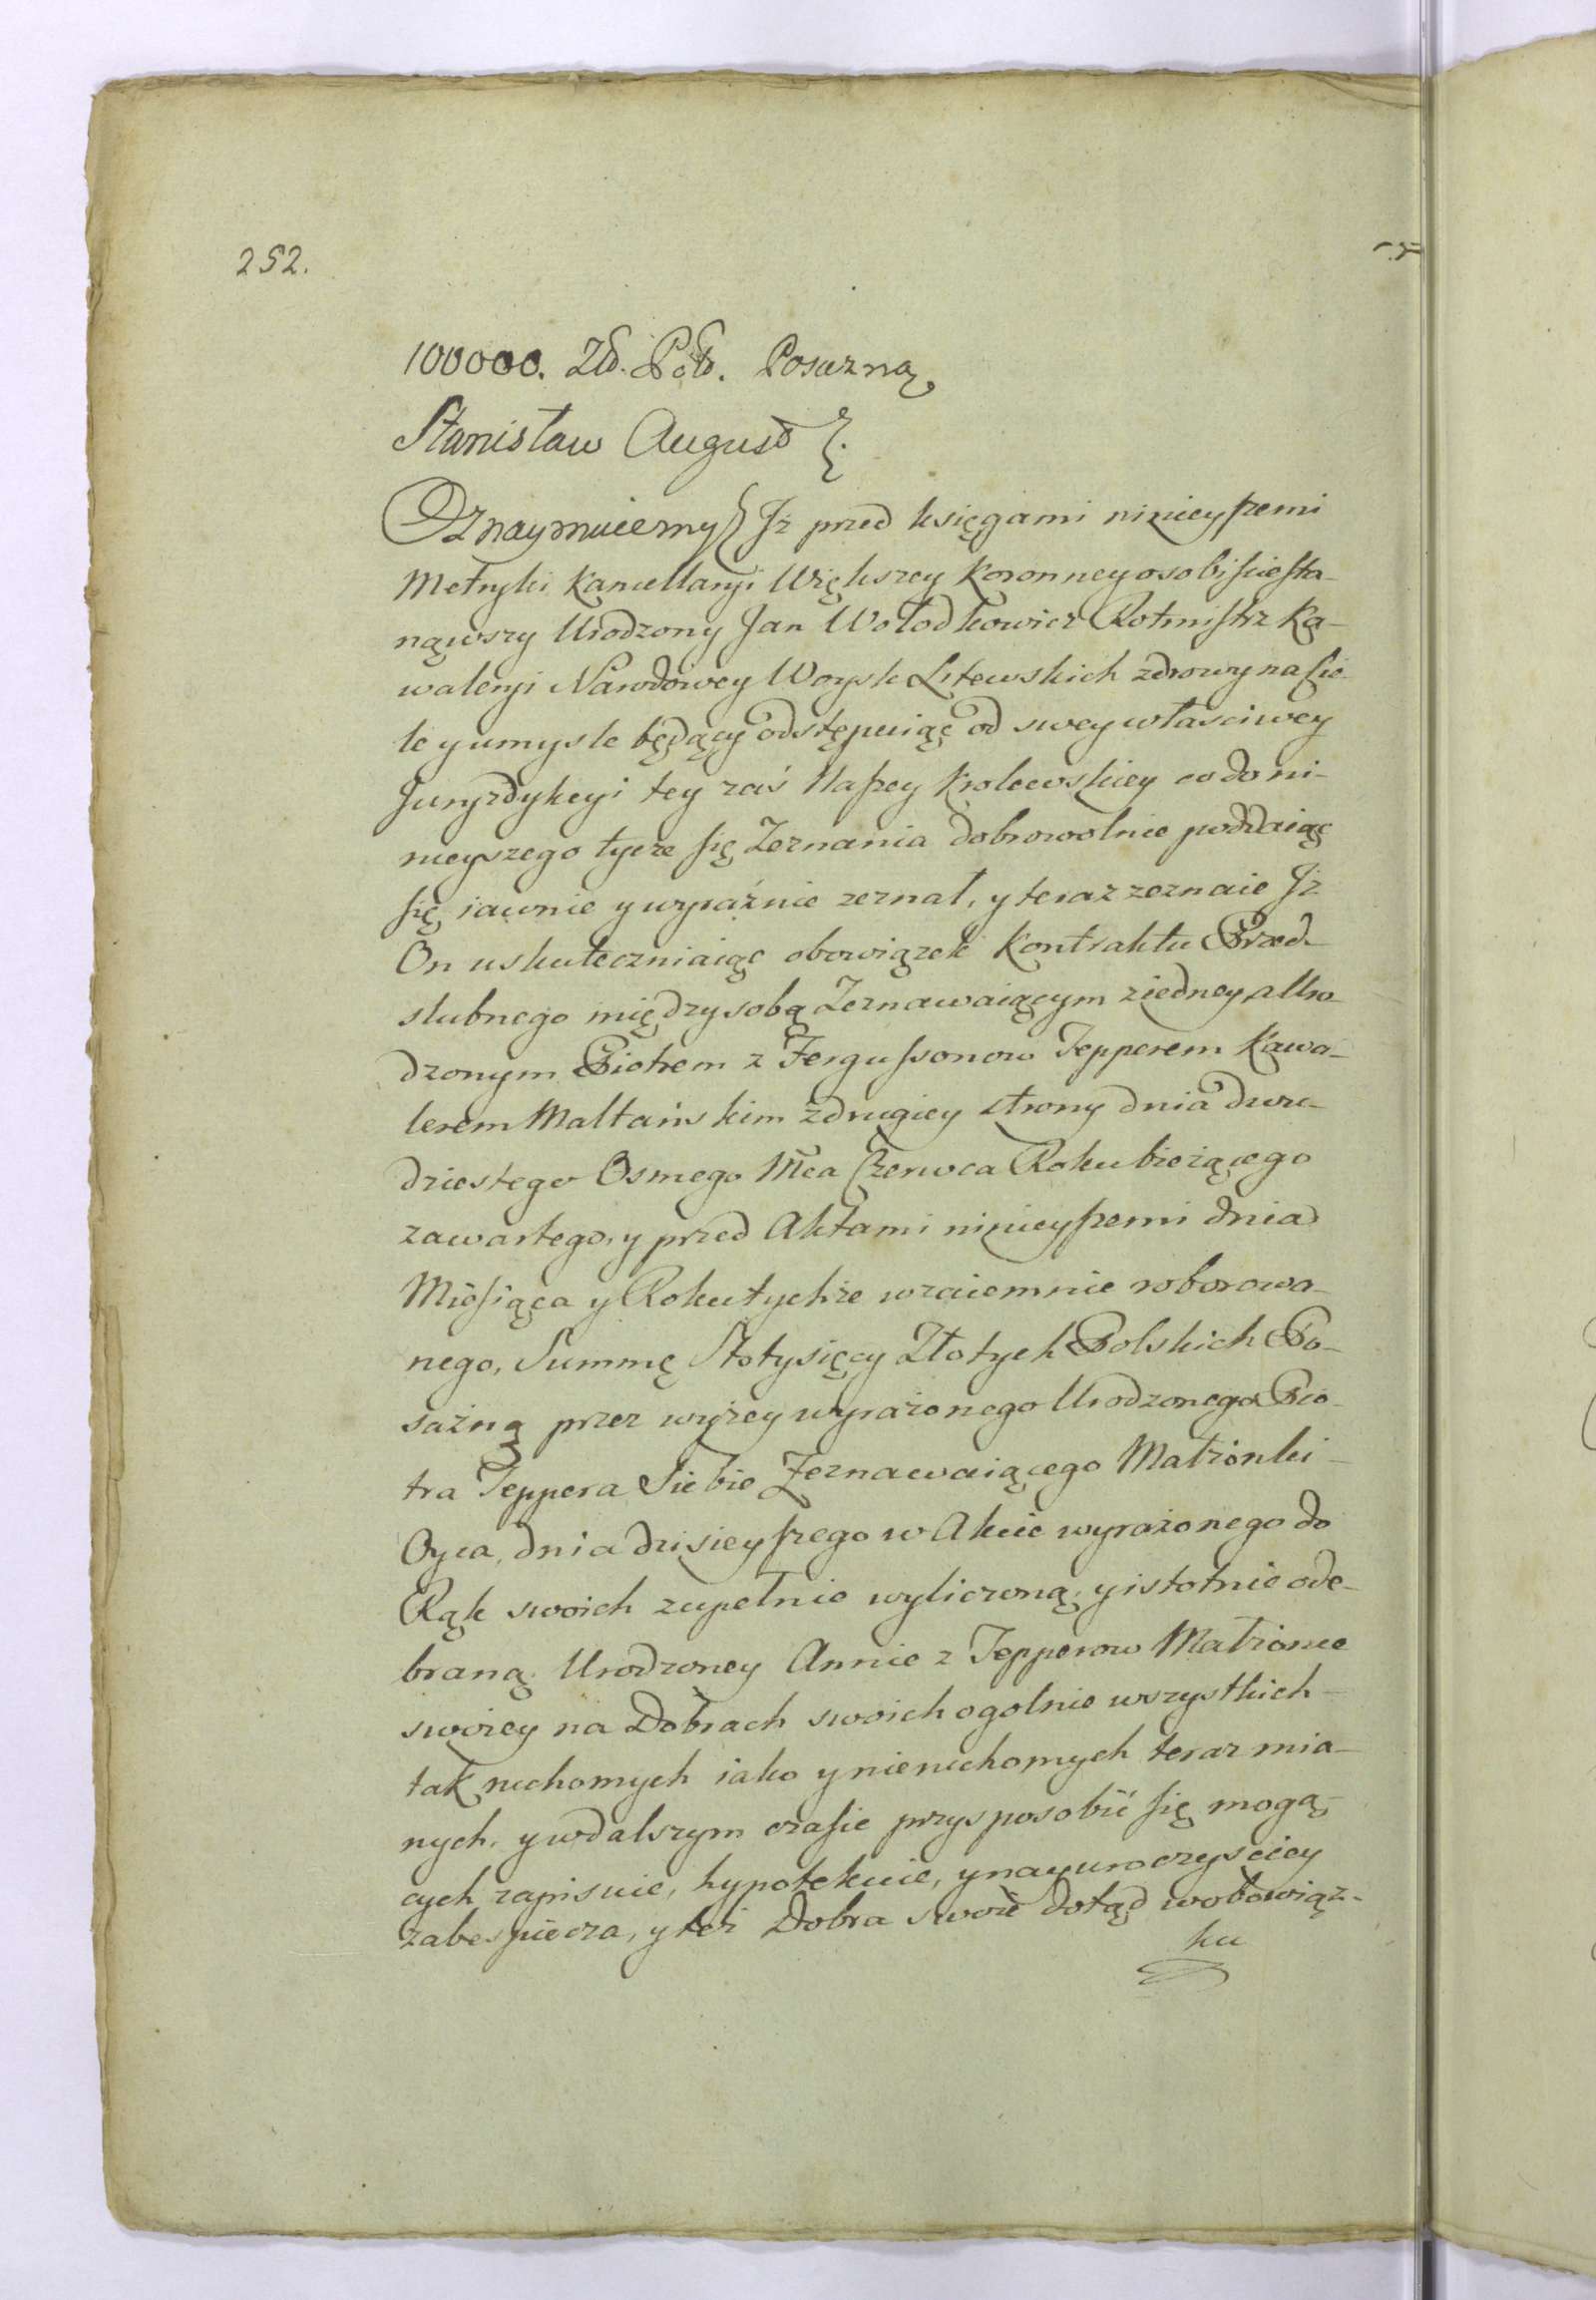 252.
100000. Zł. Pol. Posazną
Stanisław August
Oznaymuiemy Jż przed księgami ninieyszemi
Metryki Kancellaryi Większey Koronney osobiscie sta-
nąwszy Urodzony Jan Wołodkowicz Rotmistrz Ka-
waleryi Narodowey Woysk Litewskich zdrowy na cie-
le y umysle będący odstępuiąc od swey własciwey
Juryzdykcyi tey zaś Naszey Krolewskiey co do ni-
nieyszego tycze się Zeznania dobrowolnie poddaiąc
się, iawnie y wyraźnie zeznał, y teraz zeznaie Jż
On uskuteczniaiąc obowiązek Kontraktu Przed-
slubnego między sobą Zeznawaiącym z iedney, a Uro-
dzonym Piotrem z Fergussonow Tepperem Kawa-
lerem Maltańskim z drugiey strony dnia dwu-
dziestego Osmego Mca Czerwca Roku bieżącego
zawartego, y przed Aktami ninieyszemi dnia
Miesiąca y Roku tychże wzaiemnie roborowa-
nego, Summę Sto tysięcy Złotych Polskich Po-
sażną przez wyżey wyrażonego Urodzonego Pio-
tra Teppera Siebie Zeznawaiącego Małżonki -
Oyca, dnia dzisieyszego w Akcie wyrażonego do
Rąk swoich zupełnie wyliczoną, y istotnie ode-
braną. Urodzoney Annie z Tepperow Małżonce
swoiey na Dobrach swoich ogolnie wszystkich -
tak ruchomych iako y nieruchomych teraz mia-
nych, y w dalszym czasie przysposobić się mogą-
cych zapisuie, hypotekuie, y nayuroczyściey
zabespiecza, y też Dobra swoie dotąd w obowiąz-
ku